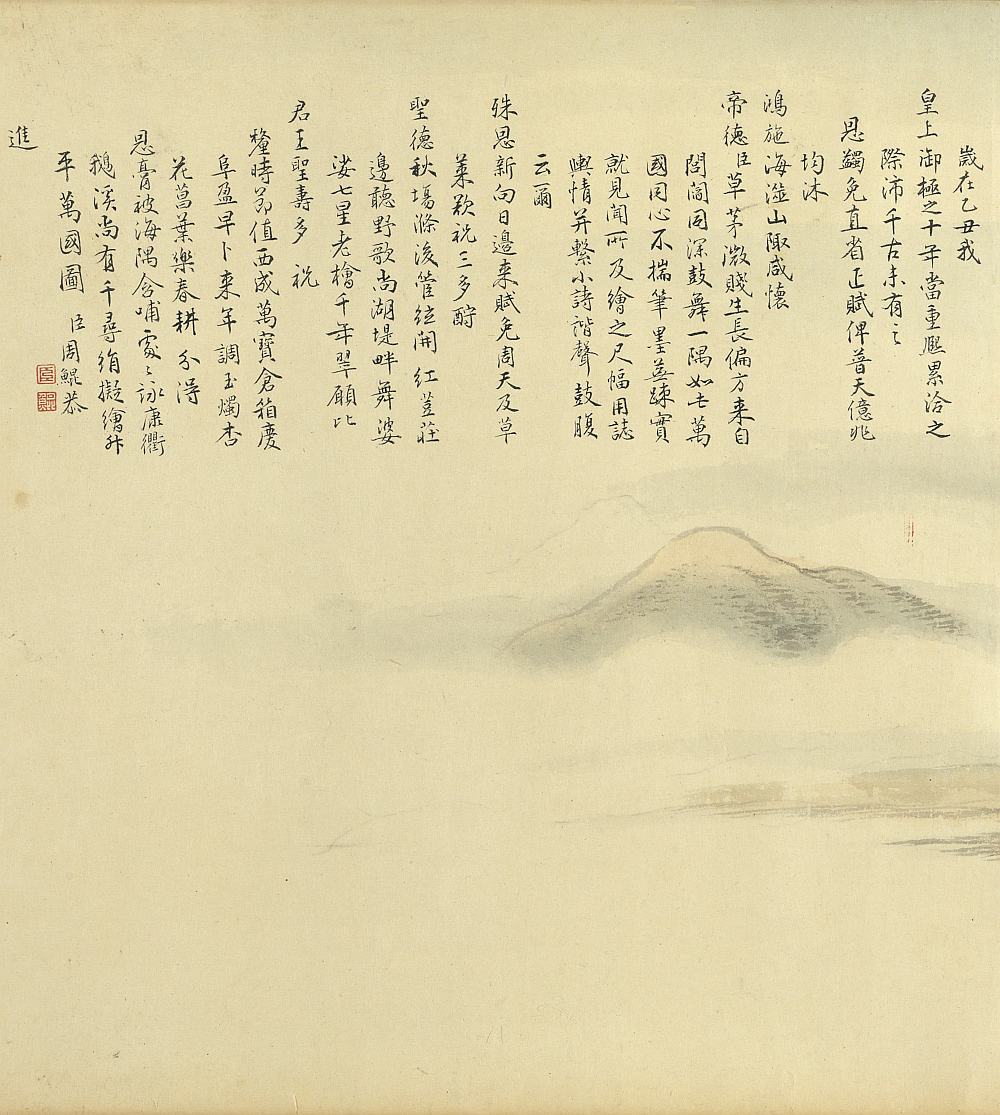 歲在乙丑我
皇上御極之十年當重熙累洽之
際沛千古未有之
恩蠲免直省正賦俾普天億兆
均沐
鴻施海澨山陬咸懷
帝德臣草茅微賤生長偏方来自
閭閻同深鼓舞一隅如是萬
國同心不揣筆墨蕪踈實
就見聞所及繪之尺幅用誌
輿情并繫小詩諧聲鼓腹
云爾
殊恩新向日邊来賦免周天及草
萊歡祝三多酧
聖德秋場滌後管絃開紅荳莊
邊聽野歌尚湖堤畔舞婆
娑七星老檜千年翠願比
君王聖壽多祝
釐時節值西成萬寶倉箱慶
阜盈早卜来年調玉燭杏
花菖葉樂春耕分得
恩膏被海隅含哺處〻詠康衢
鵝溪尚有千尋絹擬繪昇
平萬國圖臣周鯤恭
進